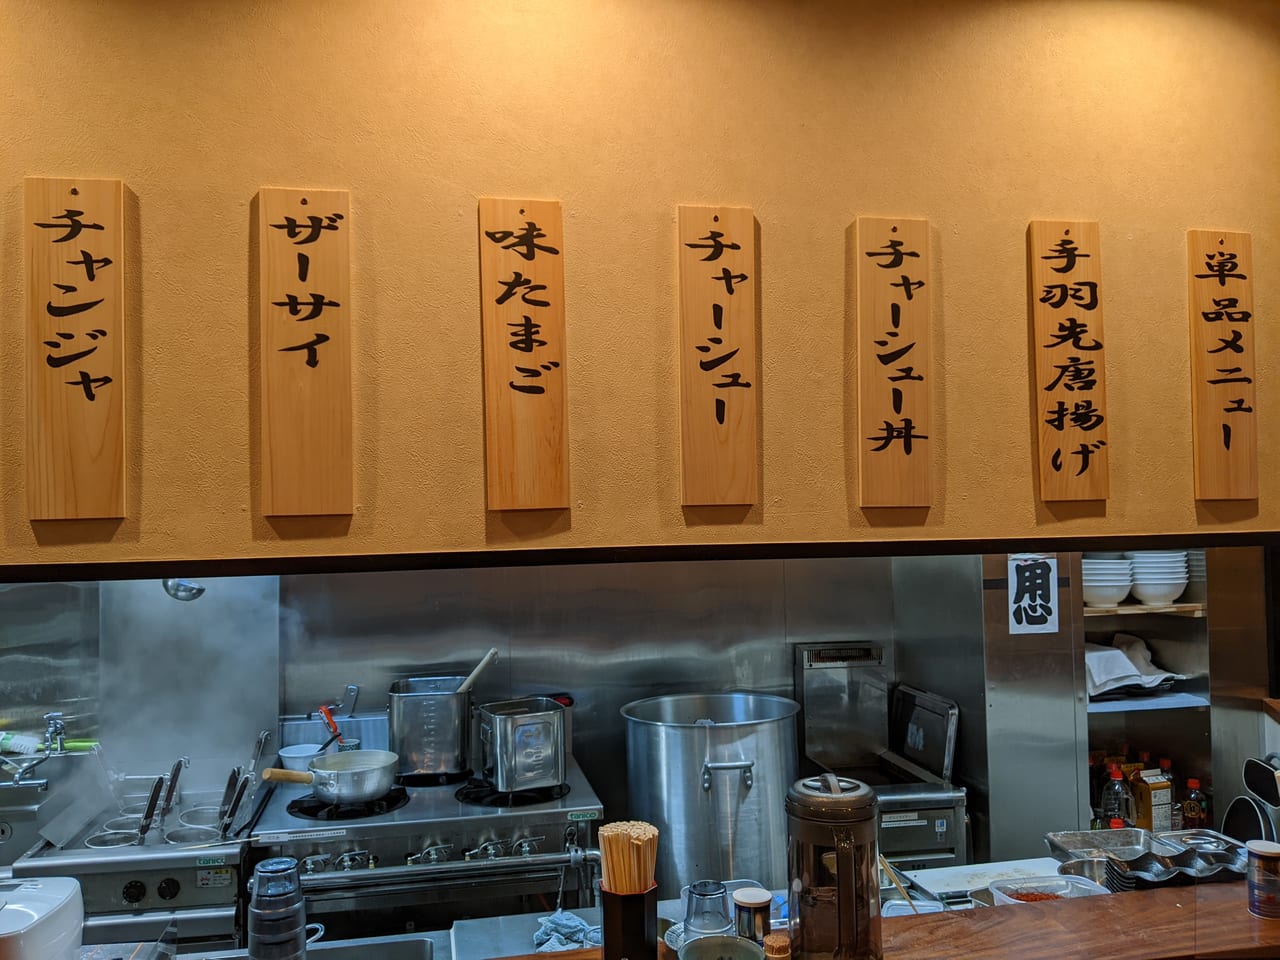 単品メニュー
手羽先唐揚げ
チャーシュー丼
チャーシュー
味たまご
ザーサイ
チャンジャ
用心
tanico
tanico